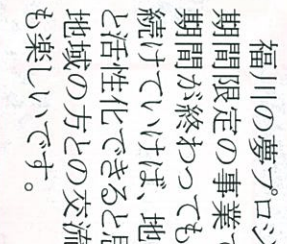 福川の夢プロジ
期間限定の事業で
期間が終わっても
続けていけば、地
と活性化できると思
地域の方との交流
も楽しいです。